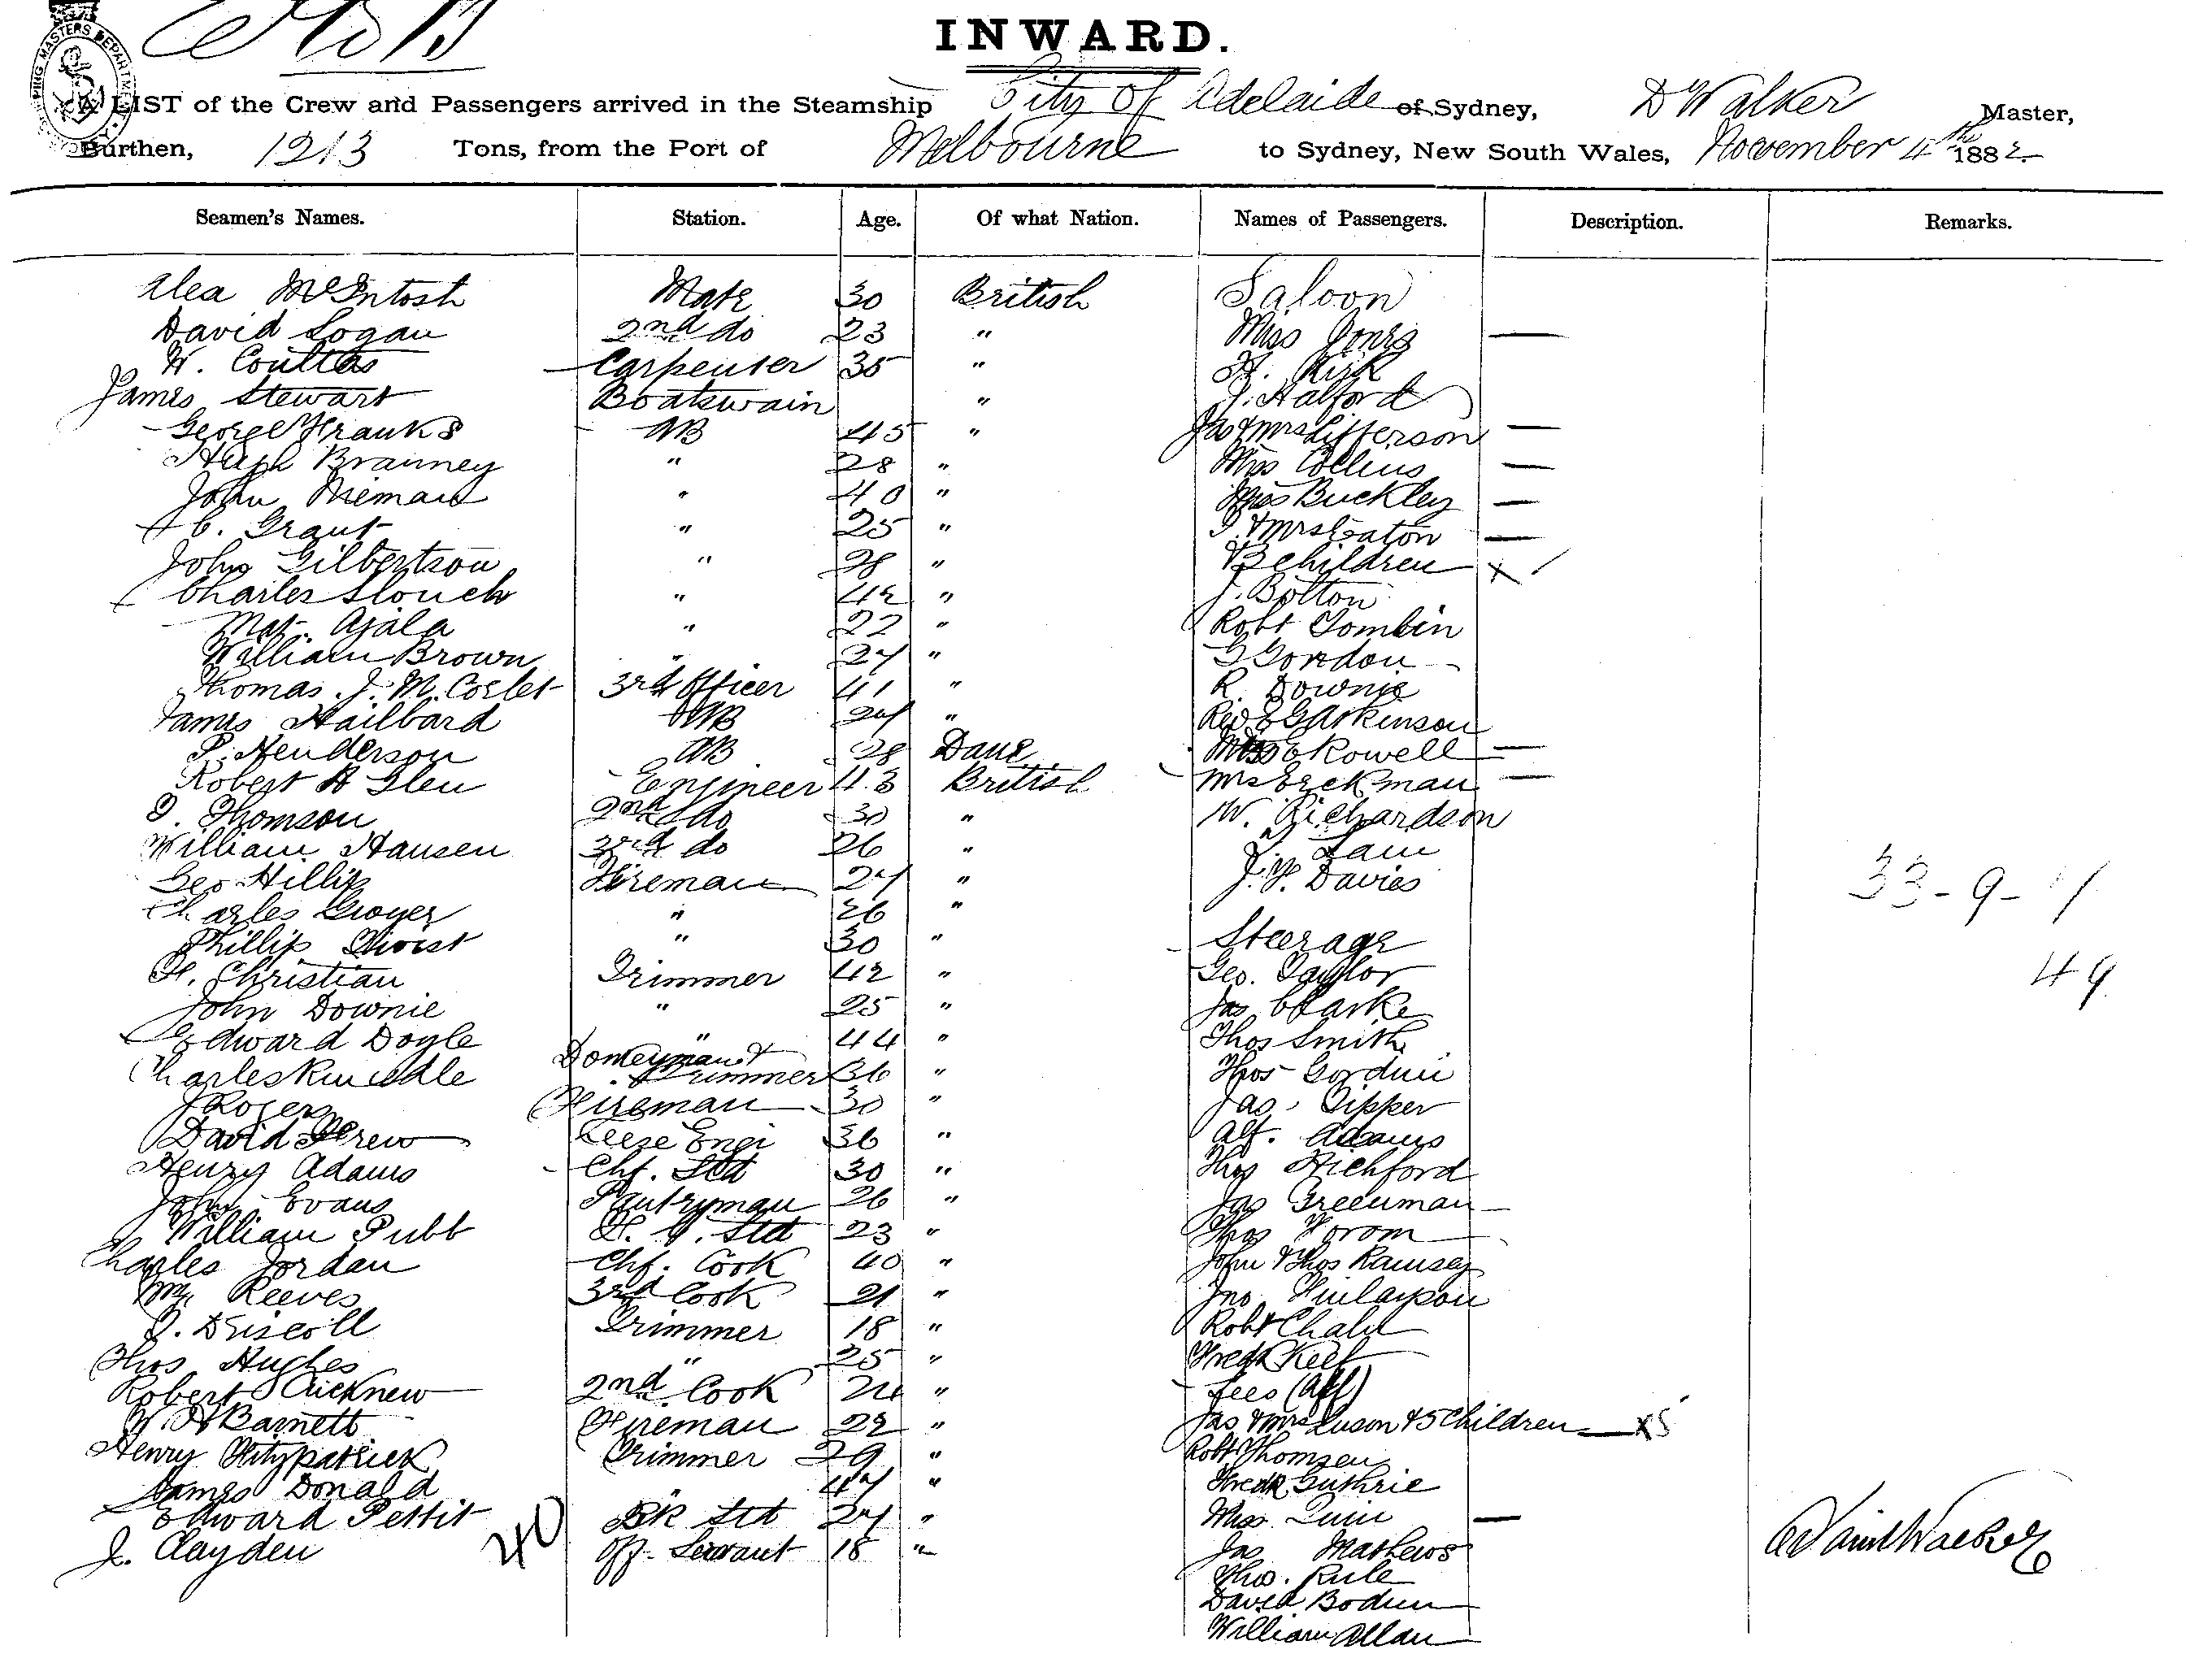 INWARD.
A LIST of the Crew and Passengers arrived in the Steamship City of Adelaide of Sydney, D Walker Master,
Burthen, 1213 Tons, from the Port of Melbourne to Sydney, New South Wales, November 4th 1882.
Seamen's Names. Station. Age. Of what Nation. Names of Passengers. Description. Remarks.
Alex McIntosh Mate 30 British Saloon
David Logan 2nd do 23 " Miss Jones —
W. Coulttas Carpenter 35 " H. Kirk
James Stewart Boatswain " J. Halford
George Franks AB 45 " Jas & Mrs Lifferson —
Hugh Branney " 28 " Miss Collins —
John Nieman " 40 " Miss Buckley —
C. Grant " 25 " & Mrs Eaton —
John Gilbertson " 28 " children x
Charles Slouch " 42 " J. Bolton
Mat. Ajala " 22 " Robt Tomlin
William Brown " 27 " G Gordon
Thomas J. M. Coslet 3rd Officer 41 " R. Downie
James Hailbard AB 27 " Rev E G Atkinson
P. Henderson AB 28 Dane Miss E Rowell —
Robert A Glen Engineer 43 British Mrs Erckman —
T. Thomson 2nd do 30 " W. Richardson
William Hansen 3rd do 26 "
Geo Hillip Fireman 27 " J. Y. Davies
Charles " 26 " 33-9-7
Phillip " 30 " Steerage
H. Christian Trimmer 42 " Geo. Taylor 49
John Downie " 25 " Jas Clarke
Edward Doyle " 44 " Thos Smith
Charles Donkeyman & Trimmer 36 " Thos
J Roger Fireman 30 " Jas Tipper
David Drew 36 " Alf. Adams
Henry Adams Chf. Std 30 " Thos Hichford
John Evans Pantryman 26 " Jas Greenman
William Pubb Std 23 " Thos
Charles Jordan Chf. Cook 40 " John & Thos Ramsey
Wm Reeves 3rd Cook 21 " Jno Finlayson
J. Driscoll Trimmer 18 " Robt
Thos Hughes " 25 " Fredk
Robert 2nd Cook 24 "
W. H Barnett Fireman 22 " Jas & Mrs Luson & 5 Children — x5
Henry Fitzpatrick Trimmer 29 " Robt Thomsen
James Donald " 47 " Fredk Guthrie
Edward Pettit Bk Std 27 " Miss Quin —
J. Clayden 40 Off. Servant 18 " Jas Mathews
Thos. Rule
David Bodun
William Allan